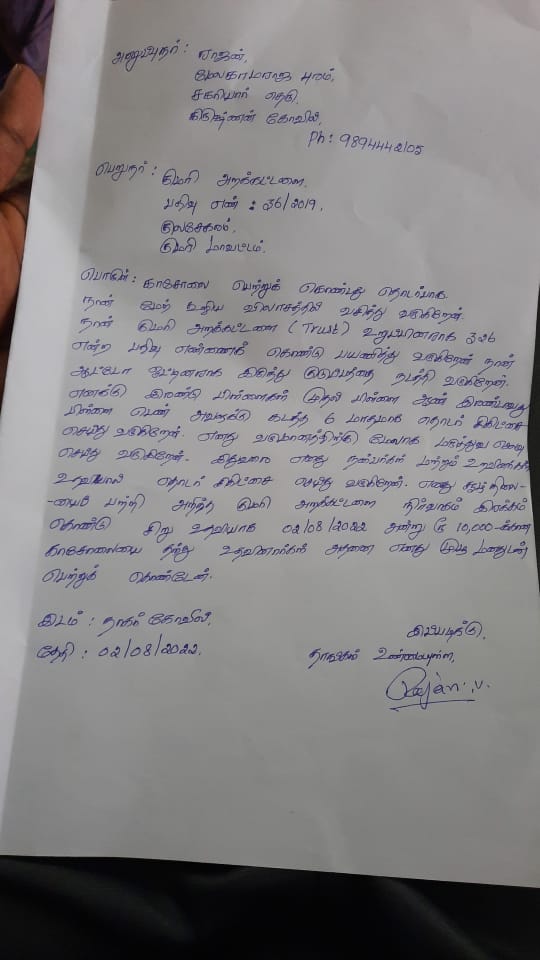 அனுப்புநர் : ராஜன்,
மேலகாமராஜ புரம்,
சகரியார் தெரு,
கிருஷ்ணன் கோவில்,
Ph: 9894442105
பெறுநர் : குமரி அறக்கட்டளை,
பதிவு எண் : 36/2019,
குலசேகரம்,
குமரி மாவட்டம்.
பொருள் : காசோலை பெற்றுக் கொண்டது தொடர்பாக
நான் மேற் கூறிய விலாசத்தில் வசித்து வருகிறேன்.
நான் குமரி அறக்கட்டளை (Trust) உறுப்பினராக 326
என்ற பதிவு எண்ணைக் கொண்டு பயணித்து வருகிறேன் நான்
ஆட்டோ ஓட்டினராக இருந்து குடும்பத்தை நடத்தி வருகிறேன்.
எனக்கு இரண்டு பிள்ளைகள் முதல் பிள்ளை ஆண் இரண்டாவது
பிள்ளை பெண் அவளுக்கு கடந்த 6 மாதமாக தொடர் சிகிட்சை
செய்து வருகிறேன். எனது வருமானத்திற்கு மேலாக மருத்துவ செலவு
செய்து வருகிறேன். இதுவரை எனது நண்பர்கள் மற்றும் உறவினர்கள்
உதவியால் தொடர் சிகிட்சை செய்து வருகிறேன். எனது சூழ்நிலை-
-யைப் பற்றி அறிந்த குமரி அறக்கட்டளை நிர்வாகம் இரக்கம்
கொண்டு சிறு உதவியாக 02/08/2022 அன்று ரூ 10,000-க்கான
காசோலையை தந்து உதவினார்கள் அதனை எனது முழு மனதுடன்
பெற்றுக் கொண்டேன்.
இடம் : நாகர் கோவில்,
தேதி : 02/08/2022.
இப்படிக்கு,
தங்கள் உண்மையுள்ள,
Rajan.v.